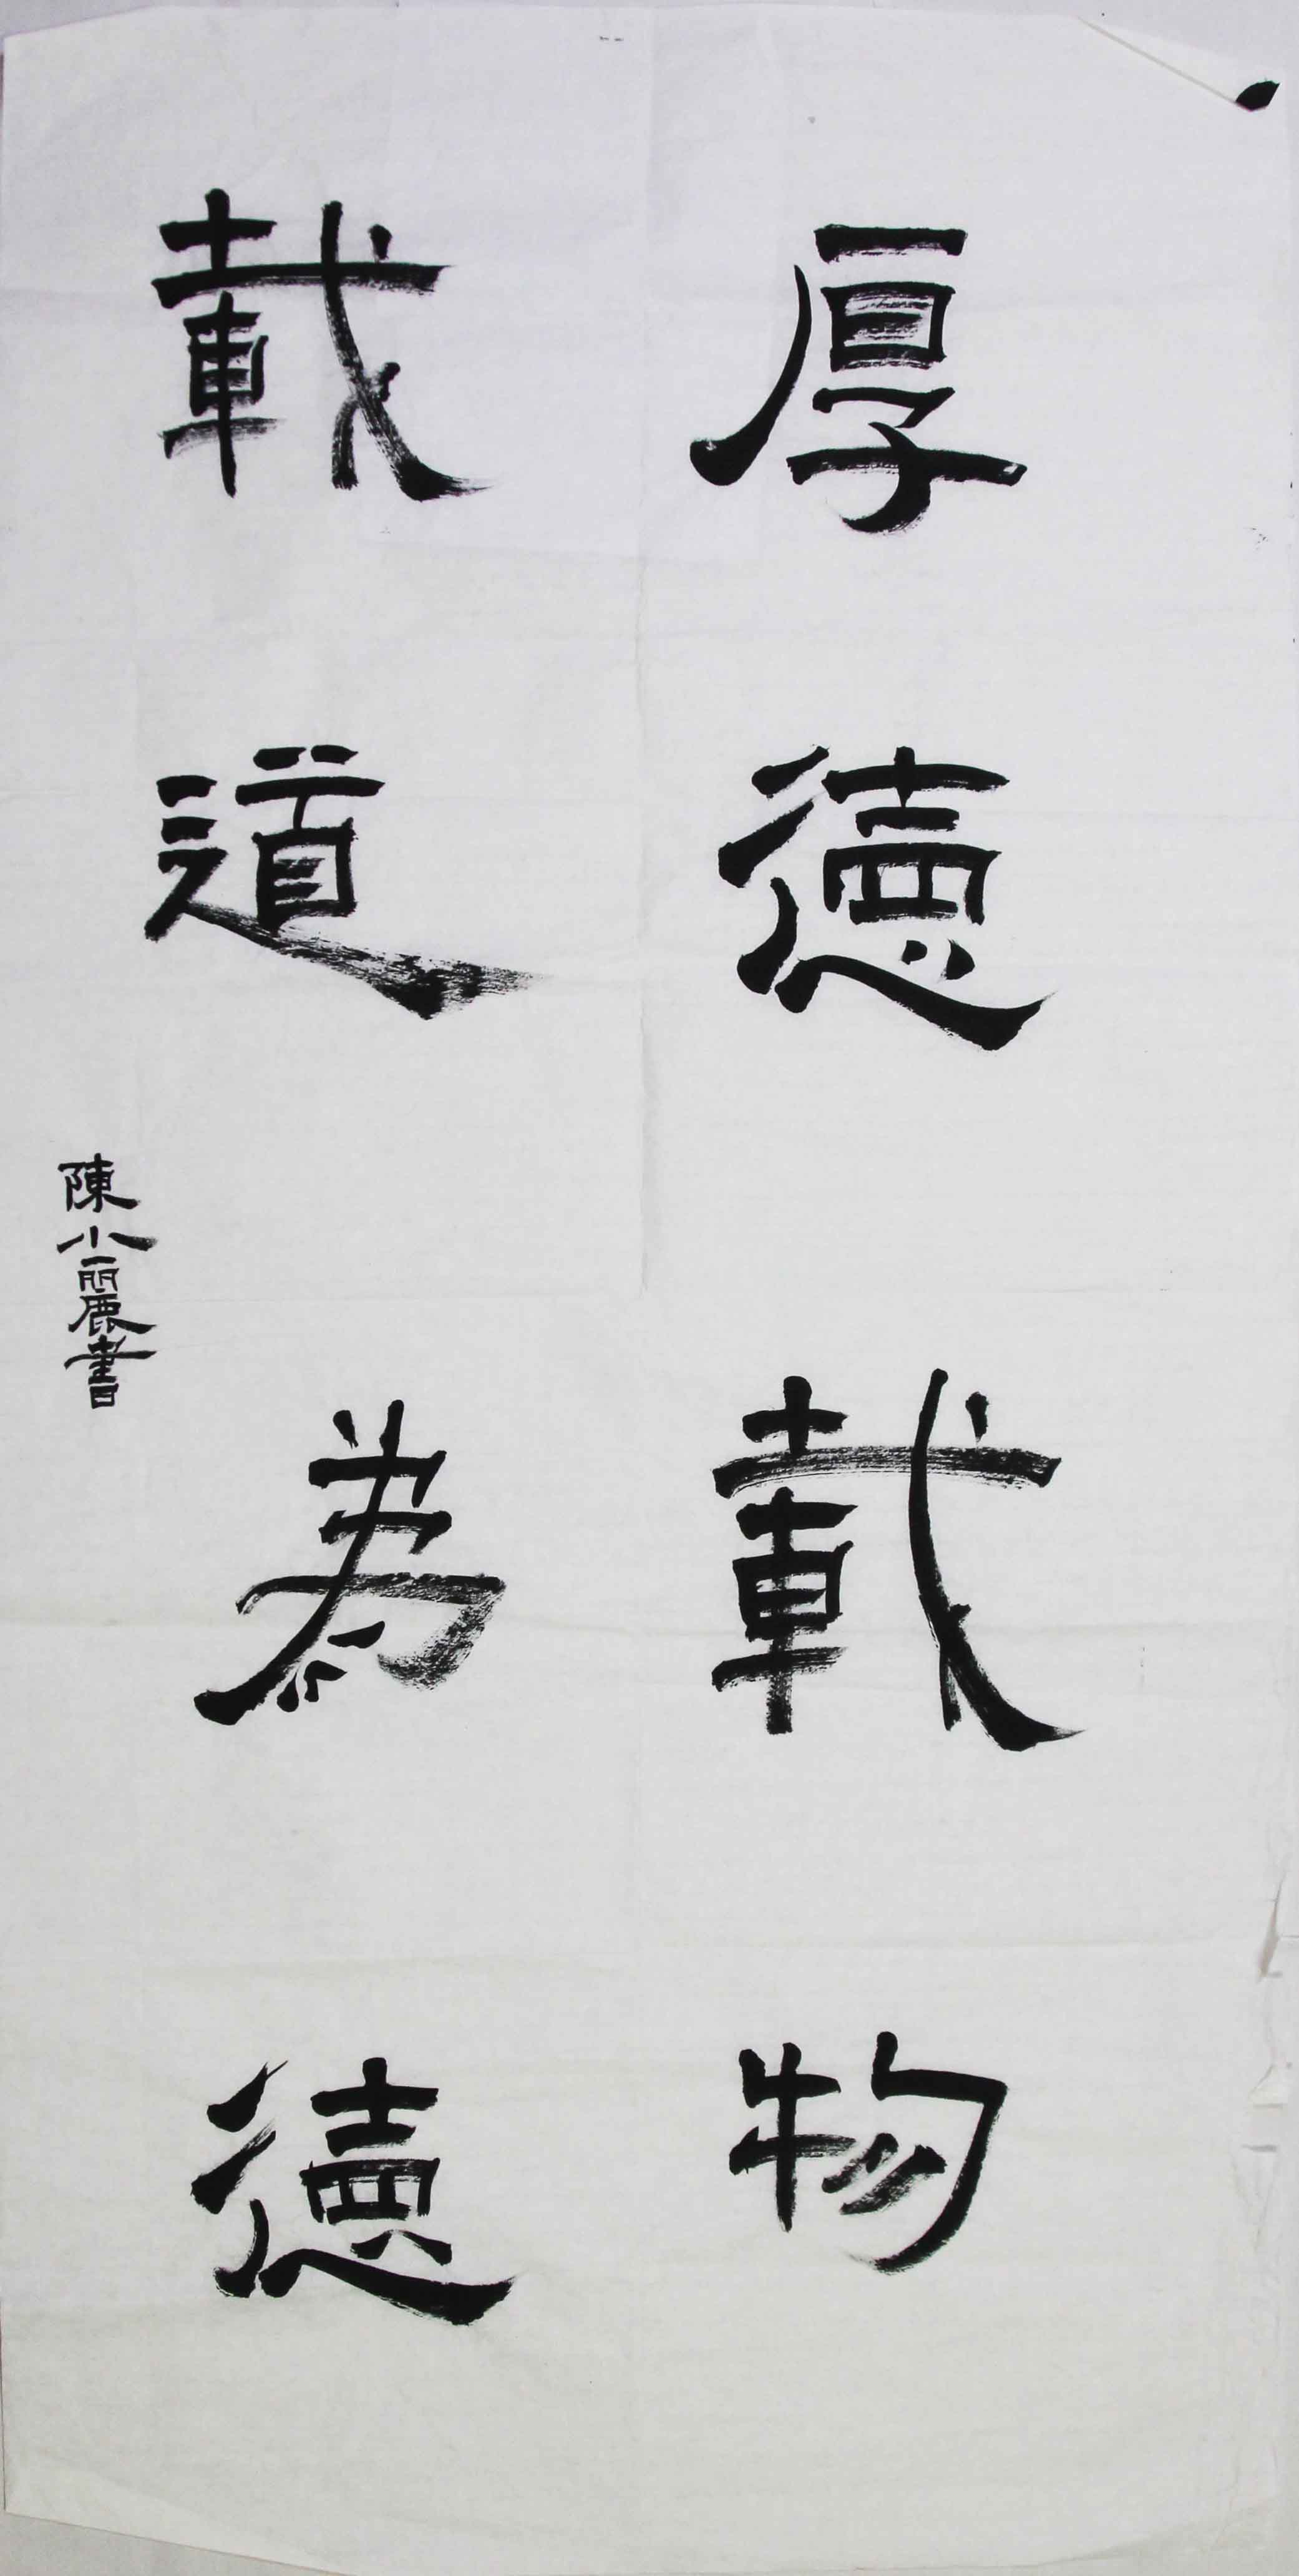 厚德載物
載道為德
陳小麗書